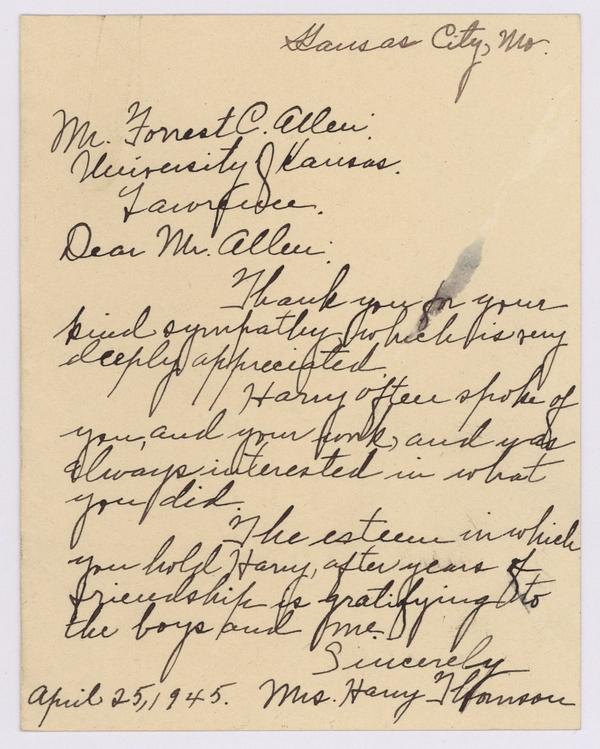 Kansas City, Mo.
Mr. Forrest C. Allen.
University of Kansas.
Lawrence.
Dear Mr. Allen:
Thank you for your
kind sympathy, which is very
deeply appreciated.
Harry often spoke of
you, and your work, and was
always interested in what
you did.
The esteem in which
you hold Harry, after years of
friendship is gratifying to
the boys and me.
Sincerely
April 25, 1945. Mrs. Harry Thomson